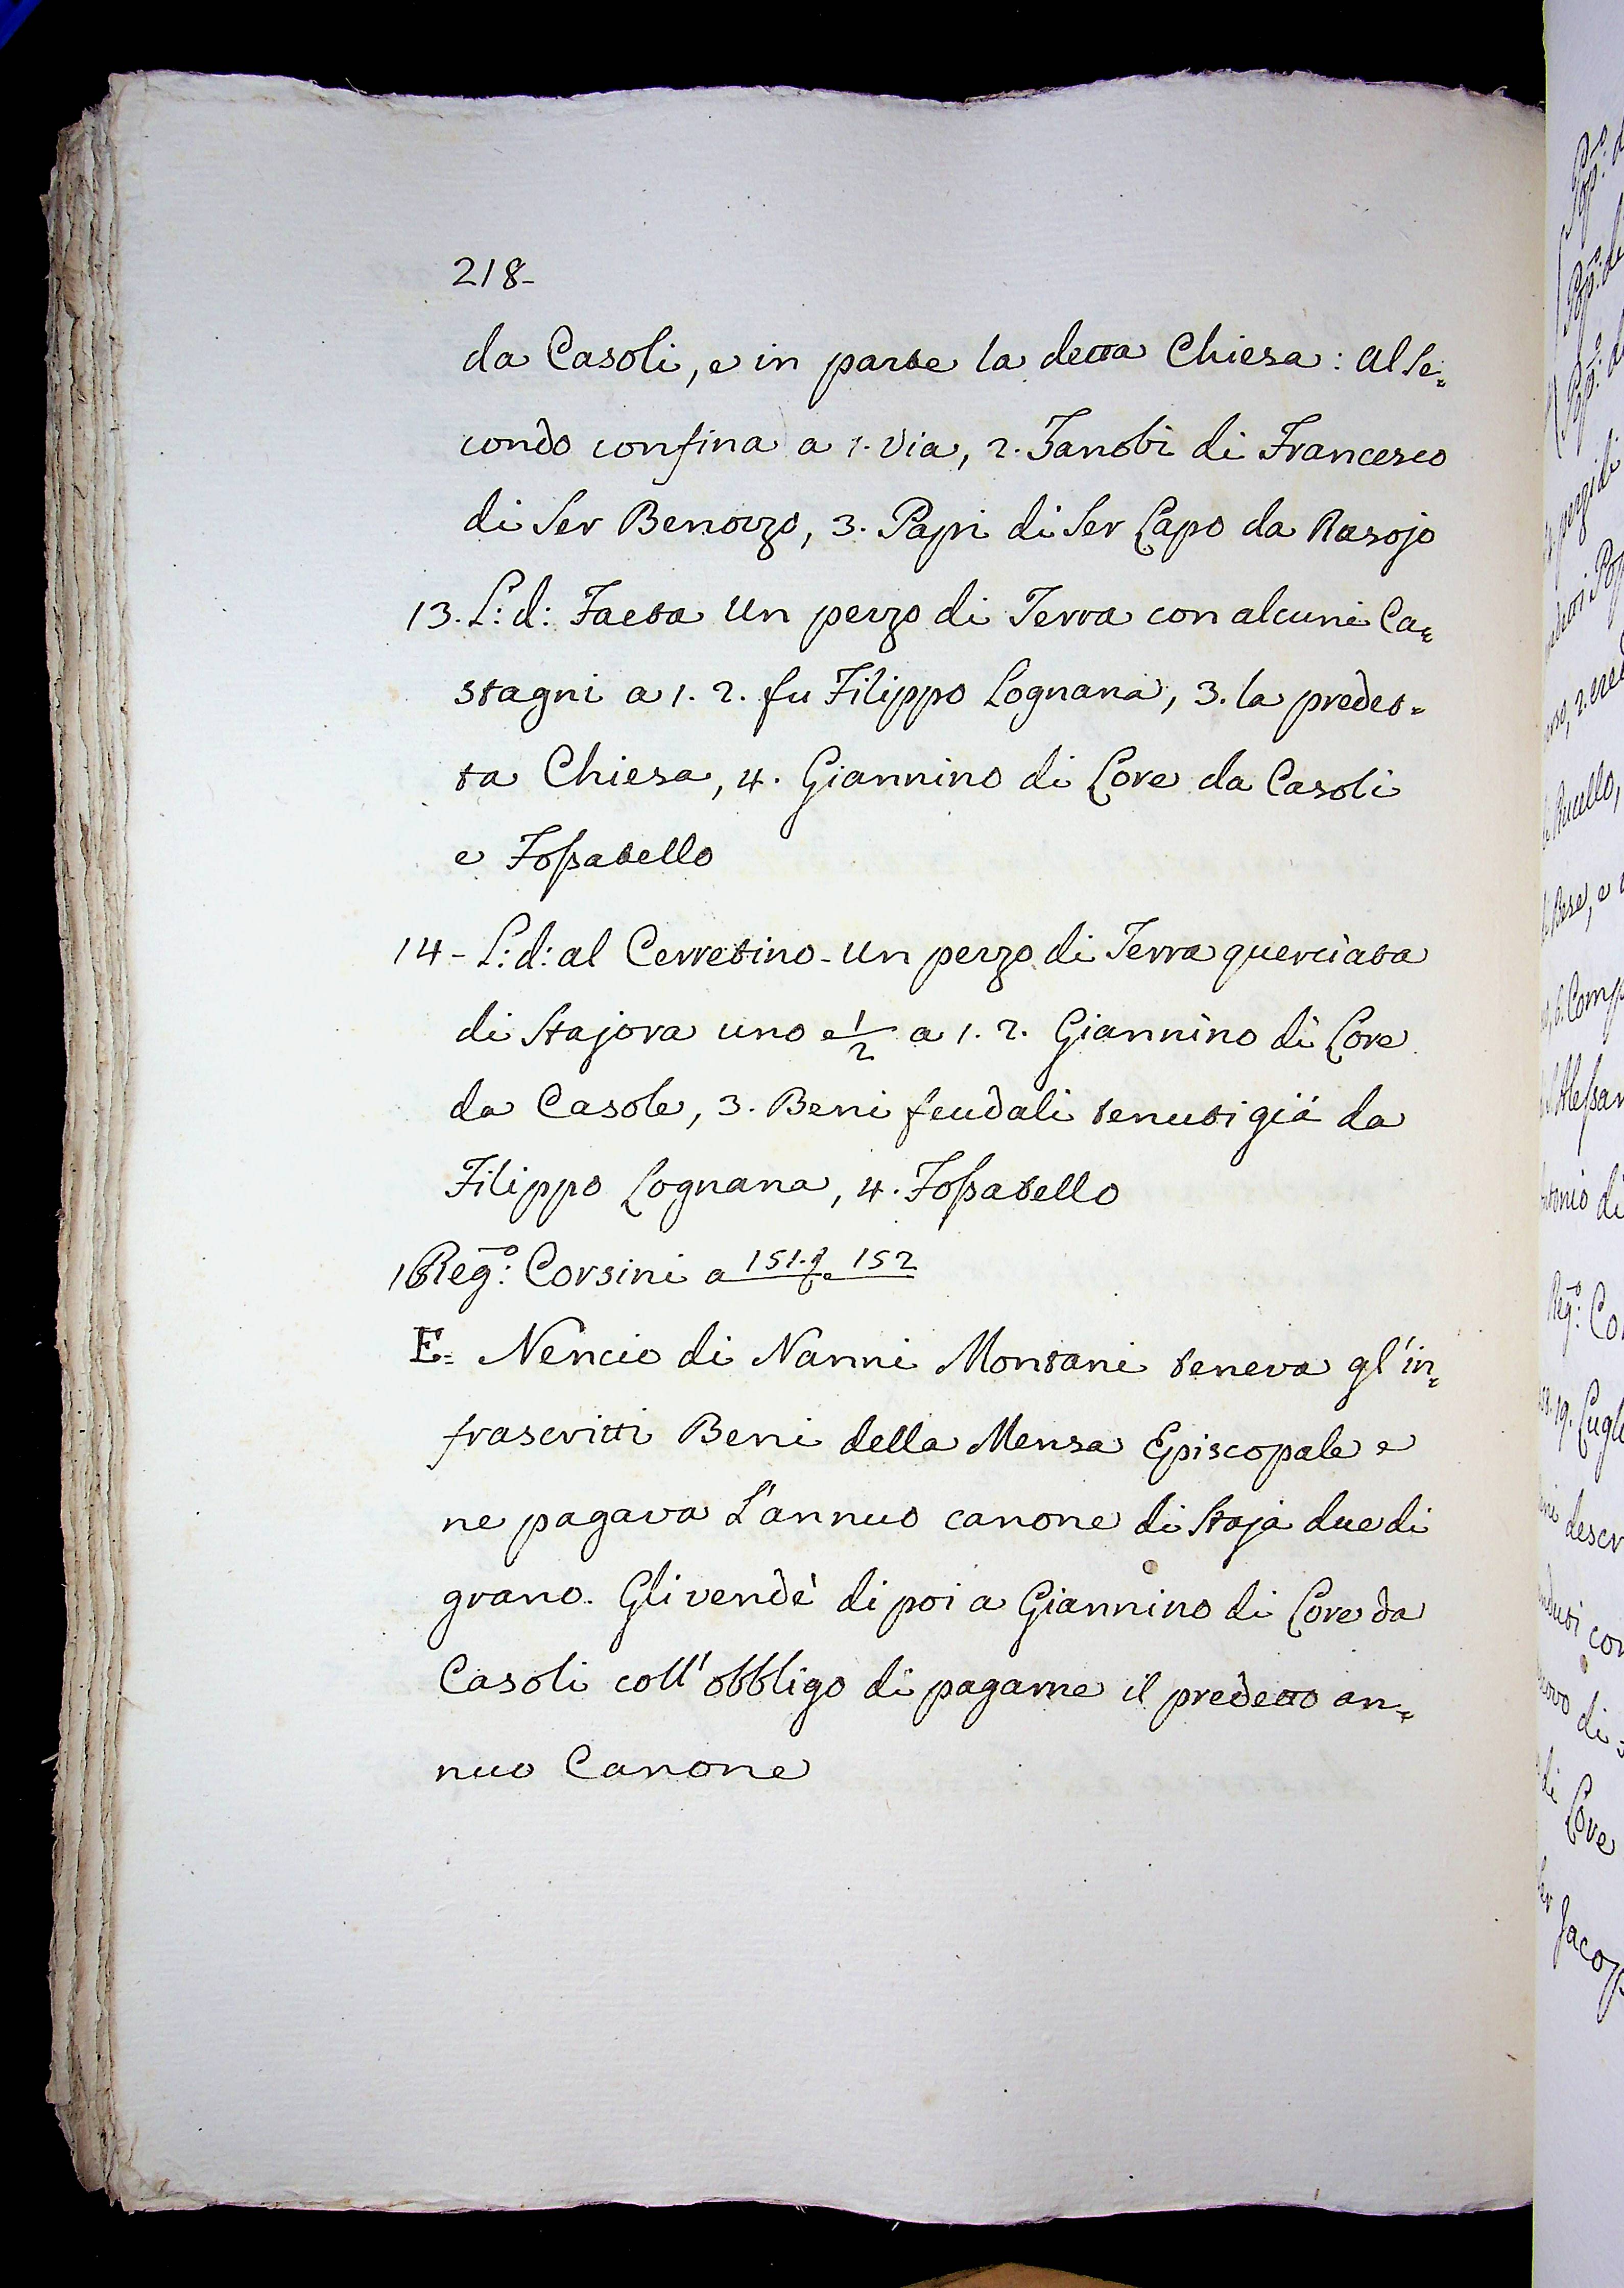 218-
da Casoli, e in parte la detta Chiesa: al Se=
condo confina a 1. Via, 2. Zanobi di Francesco
di Ser Benozzo, 3. Papi di Ser Lapo da Rasojo
13. L: d: Faeta Un pezzo di Terra con alcuni Ca=
stagni a 1. 2. fu Filippo Lognana, 3. la predet=
ta Chiesa, 4. Giannino di Core da Casoli
e Fossatello
14- L: d: al Cerretino- Un pezzo di Terra querciata
di Stajora uno e 1/2 a 1. 2. Giannino di Core
da Casole, 3. Beni feudali tenuti già da
Filippo Lognana, 4. Fossatello
Reg:º Corsini a 151. 152
E= Nencio di Nanni Montani teneva gl'in=
frascritti Beni della Mensa Episcopale e
ne pagava l'annuo canone di Staja due di
grano. Gli vendè di poi a Giannino di Core da
Casoli coll'obbligo di pagarne il predetto an=
nuo Canone